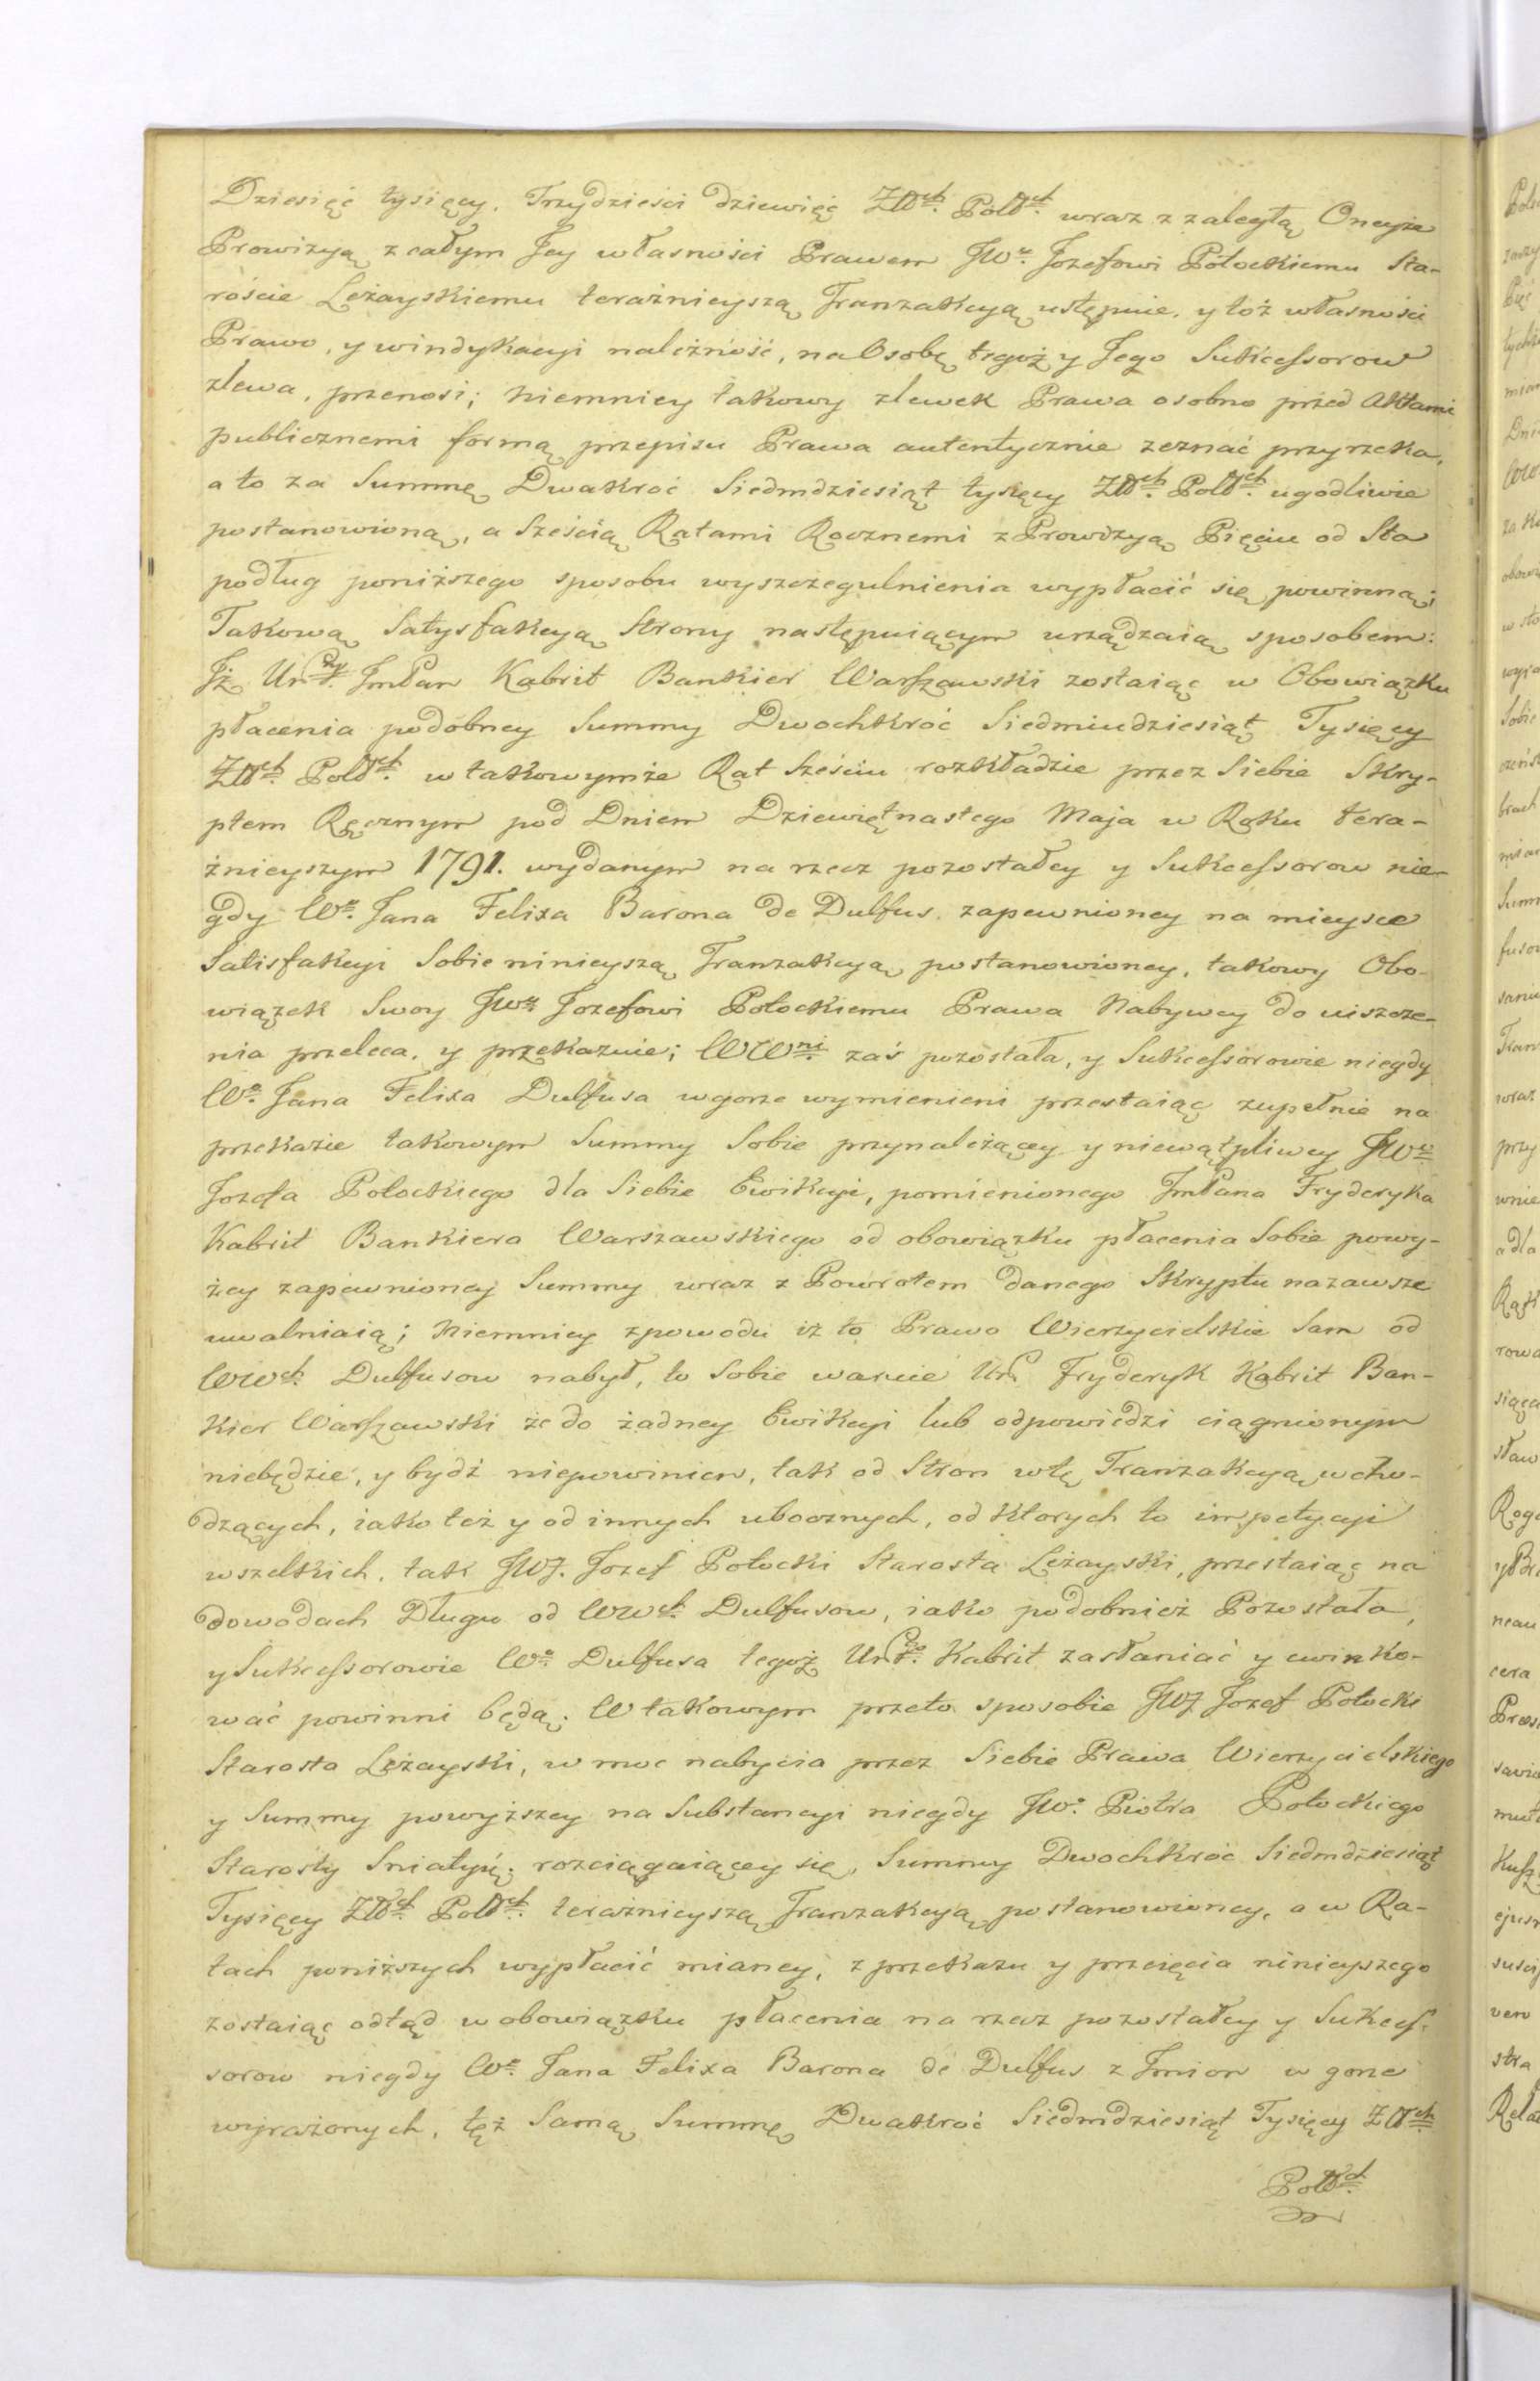 Dziesięć tysięcy. Trzydzieści dziewięć Złłch. Polłch. wraz z zaległą Oneyże
Prowizyą z całym Jey własności Prawem JWu. Jozefowi Potockiemu Sta-
róście Leżayskiemu teraźnieyszą Tranzakcyą ustępuie, y toż własności
Prawo, y windykacyi należność, na Osobę tegoż y Jego Sukcessorow
zlewa, przenosi; niemniey takowy zlewek Prawa osobno przed Aktami
publicznemi formą przepisu Prawa autentycznie zeznać przyrzeka,
a to za Summę Dwakroć Siedmdziesiąt tysięcy Złłch. Polłch. ugodliwie
postanowioną, a Sześcią Ratami Rocznemi z Prowizyą Pięciu od Sta
podług poniższego sposobu wyszczegulnienia wypłacić się powinną;
Takową Satysfakcyą Strony następuiącym urządzaią sposobem:
Jż Ur. JmPan Kabrit Bankier Warszawski zostaiąc w Obowiązku
płacenia podobney Summy Dwochkroć Siedmiudziesiąt Tysięcy
Złłch. Polłch. w takowymże Rat Sześciu rozkładzie przez Siebie Skry-
ptem Ręcznym pod Dniem Dziewiętnastego Maja w Roku tera-
źnieyszym 1791. wydanym na rzecz pozostałey y Sukcessorow nie-
gdy Wo. Jana Felixa Barona de Dulfus zapewnioney na mieysce
Satisfakcyi Sobie ninieyszą Tranzakcyą postanowioney, takowy Obo-
wiązek Swoy JWu Jozefowi Potockiemu Prawa Nabywcy do uiszcze-
nia przeleca, y przekazuie; WWni. zaś pozostała, y Sukcessorowie niegdy
Wo. Jana Felixa Dulfusa w gorze wymienieni przestaiąc zupełnie na
przekazie takowym Summy Sobie przynależącey y niewątpliwey JWo
Jozefa Potockiego dla Siebie Ewikcyi, pomienionego JmPana Fryderyka
Kabrit Bankiera Warszawskiego od obowiązku płacenia Sobie powy-
żey zapewnioney Summy wraz z Powrotem danego Skryptu nazawsze
uwalniaią; Niemniey z powodu iż to Prawo Wierzycielskie Sam od
WWch. Dulfusow nabył, to Sobie waruie Ur. Fryderyk Kabrit Ban-
kier Warszawski że do żadney Ewikcyi lub odpowiedzi ciągnionym
niebędzie, y bydź niepowinien, tak od Stron w tę Tranzakcyą wcho-
dzących, iako też y od innych ubocznych, od ktorych to impetycyi
wszelkich, tak JWJ. Jozef Potocki Starosta Leżayski, przestaiąc na
dowodach Długu od WWch. Dulfusow, iako podobnież Pozostała,
y Sukcessorowie Wo. Dulfusa tegoż Ur. Kabrit zasłaniać y ewinko-
wać powinni będą. W takowym przeto sposobie JWJ Jozef Potocki
Starosta Leżayski, w moc nabycia przez Siebie Prawa Wierzycielskiego
y Summy powyższey na Substancyi niegdy JWo. Piotra Potockiego
Starosty Sniatyń: rozciągaiącey się, Summy Dwochkroć Siedmdziesiąt
Tysięcy Złłch. Polłch. teraźnieyszą Tranzakcyą postanowioney, a w Ra-
tach poniższych wypłacić mianey, z przekazu y przeięcia ninieyszego
zostaiąc odtąd w obowiązku płacenia na rzecz pozostałey y Sukces-
sorow niegdy Wo. Jana Felixa Barona de Dulfus z Jmion w gorze
wyrażonych, tęż Samą Summę Dwakroć Siedmdziesiąt Tysięcy Złłch.
Polłch.